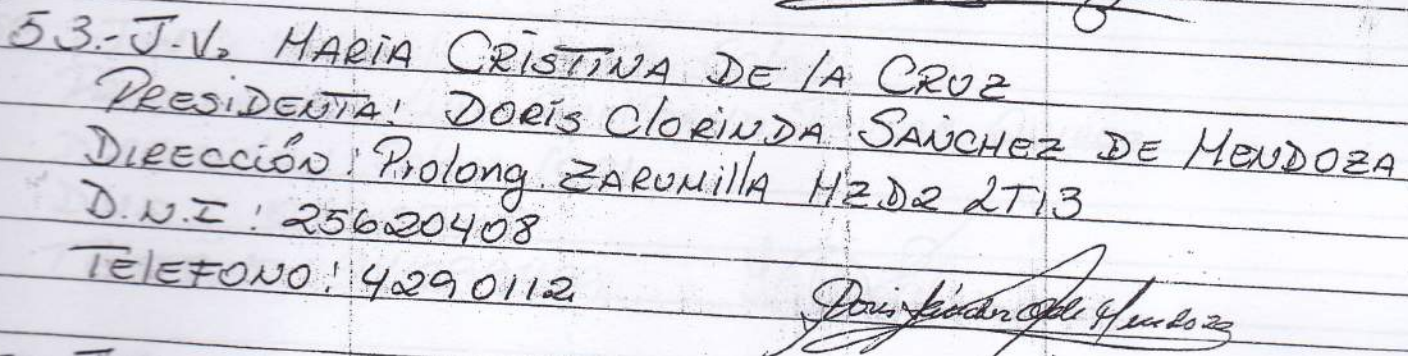 53.- J.V. MARIA CRISTINA DE LA CRUZ
PRESIDENTA: DORIS CLORINDA SANCHEZ DE MENDOZA
DIRECCIÓN: Prolong. ZARUMILLA MZD2 LT13
D.N.I: 25620408
TELEFONO: 4290112
Doris Sánchez de Mendoza